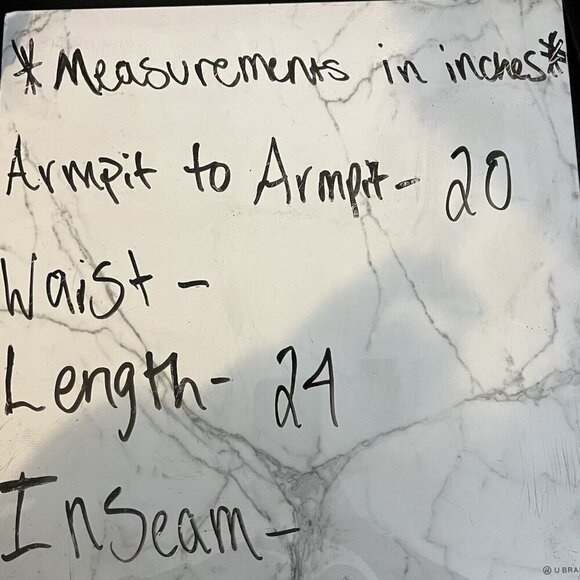 *Measurements in inches*
Armpit to Armpit- 20
Waist -
Length- 24
Inseam-
U BRA